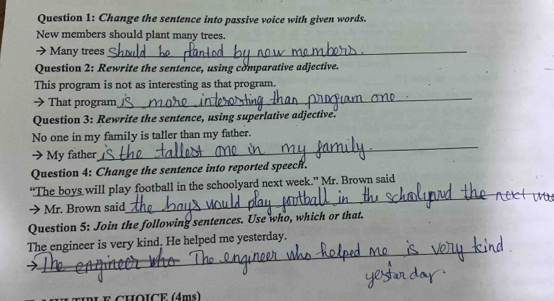 Question 1: Change the sentence into passive voice with given words.
New members should plant many trees.
→ Many trees should be planted by new members.
Question 2: Rewrite the sentence, using comparative adjective.
This program is not as interesting as that program.
→ That program is more interesting than program one.
Question 3: Rewrite the sentence, using superlative adjective.
No one in my family is taller than my father.
→ My father is the tallest one in my family.
Question 4: Change the sentence into reported speech.
“The boys will play football in the schoolyard next week.” Mr. Brown said
→ Mr. Brown said the boys would play football in the schoolyard the next
Question 5: Join the following sentences. Use who, which or that.
The engineer is very kind. He helped me yesterday.
→ The engineer who The engineer who helped me is very kind.
yesterday.
MULTIPLE CHOICE (4ms)